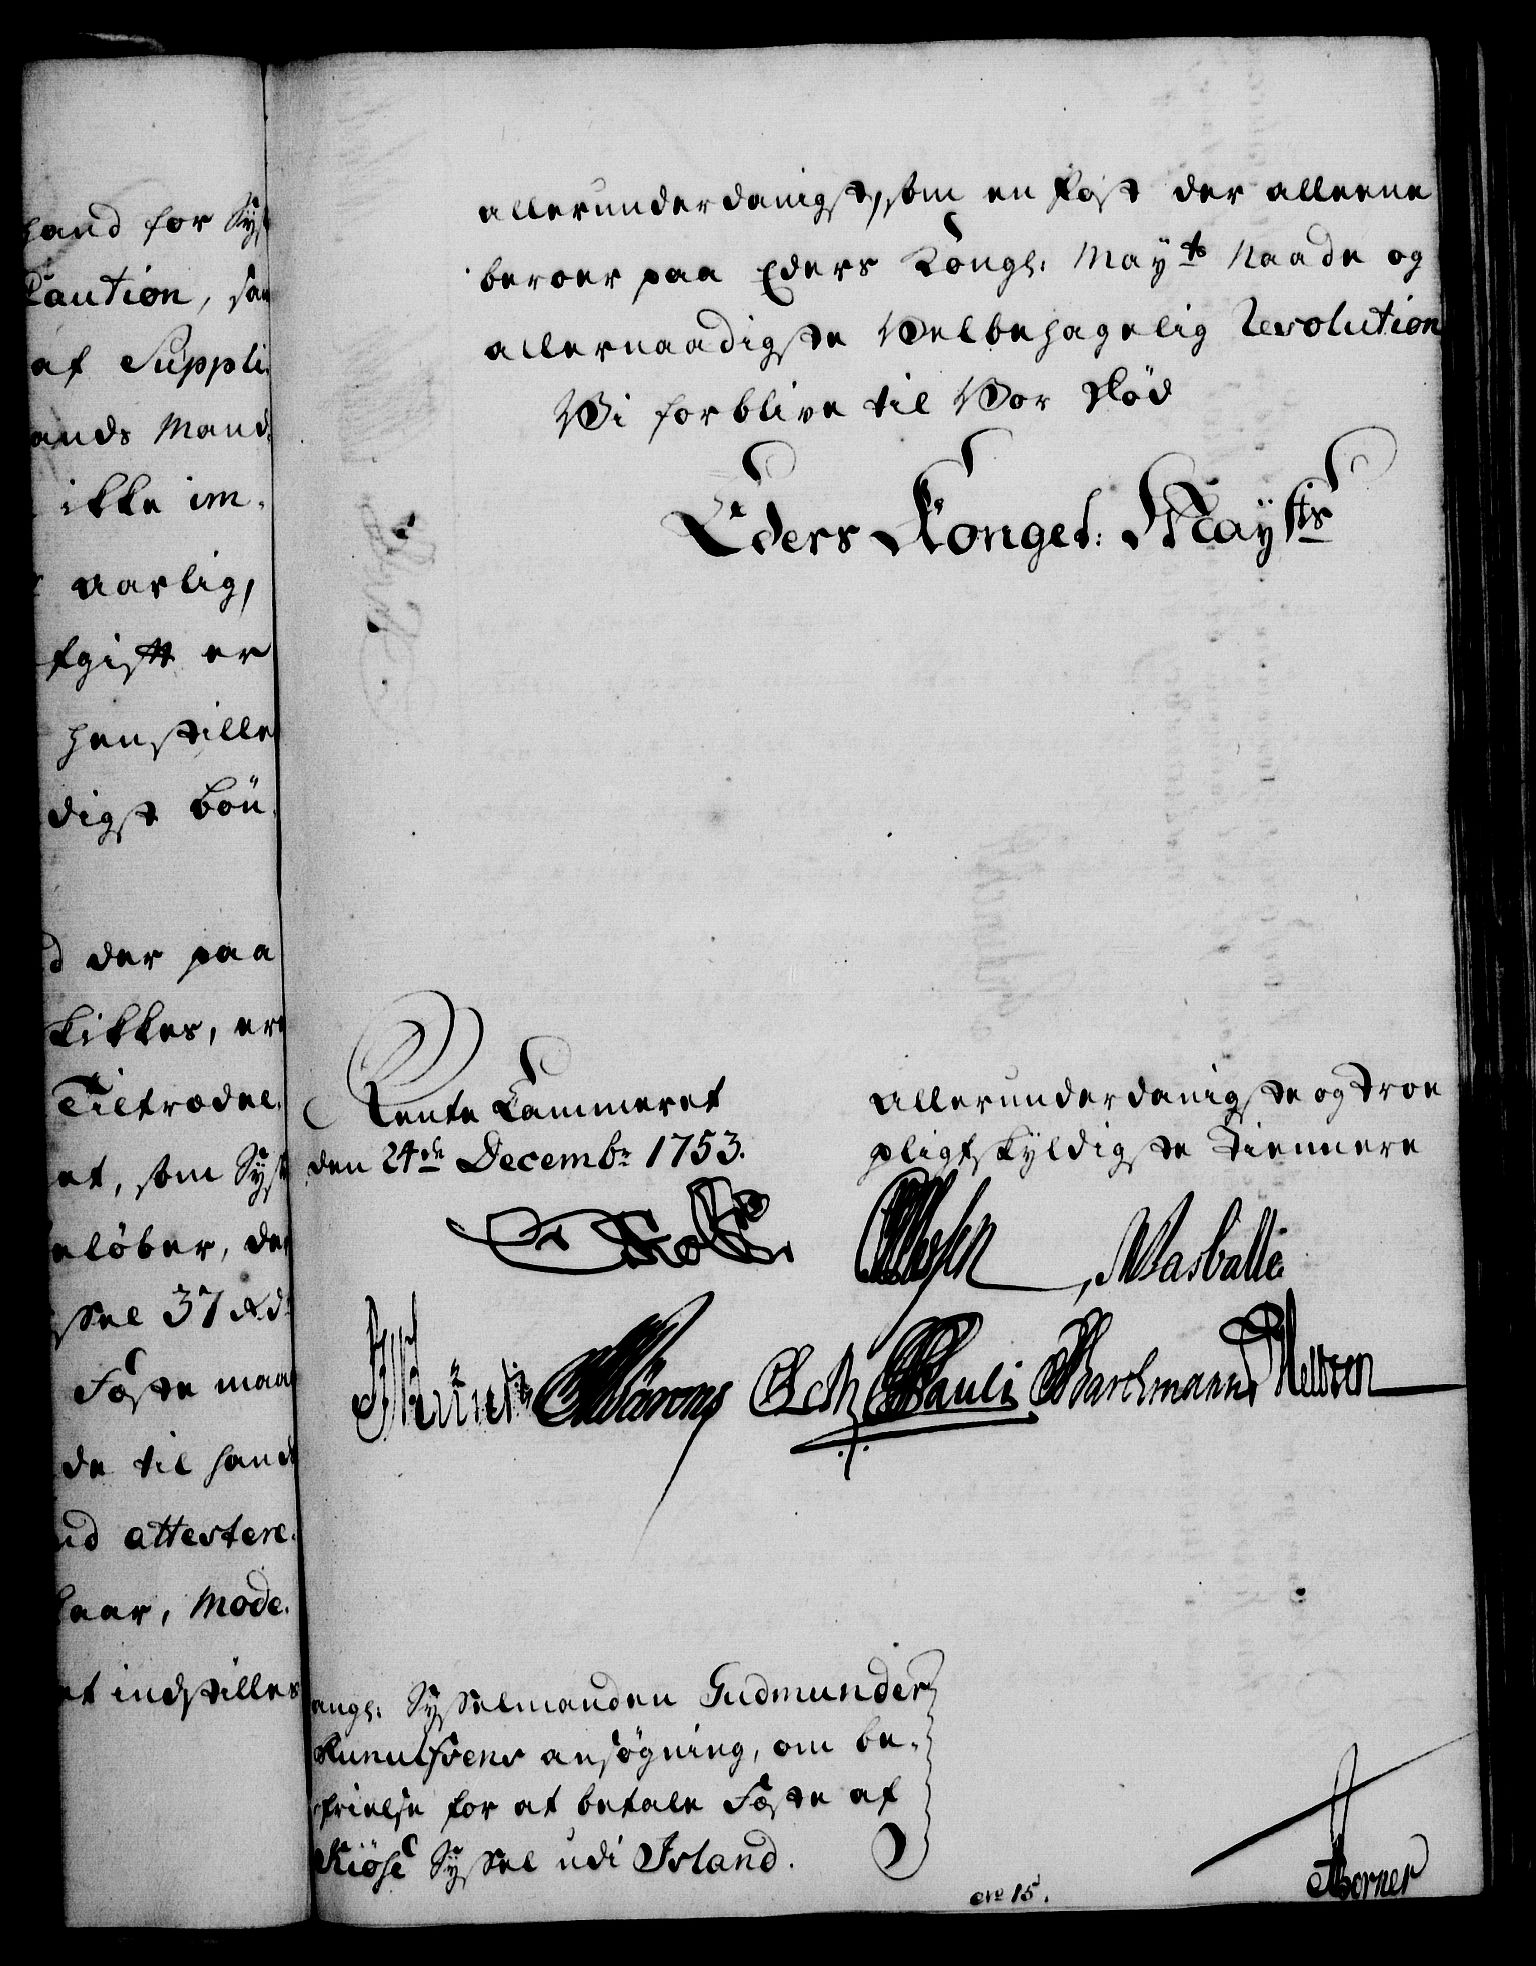 hand for Sys
Caution, sam
af Suppli
ands Mand
ikke im-
aarlig,
fgift er
henstille
digst bön
der paa
kikkes, ere
Tiltrædel-
et, som Sys
eløber, der
ssel 37 Rd
Fæste maa
de til hand
ud attestere
laar, Mode-
et indstilles
allerunderdanigst, som en Post der alleene
beroer paa Eders Kongl. Mayts Naade og
allernaadigste Velbehagelig Resolution
Vi forblive til Vor Död
Eders Kongel: Mayts
Rente Cammeret
den 24de Decembr 1753.
allerunderdanigste og troe
pligtskyldigste Tiennere
Wasballe
Pauli Barchmann
angl: Sysselmanden Gudmunder
Runulfsens ansøgning, om be-
frielse for at betale Fæste af
Kiöse Syssel udi Island.
No 15.